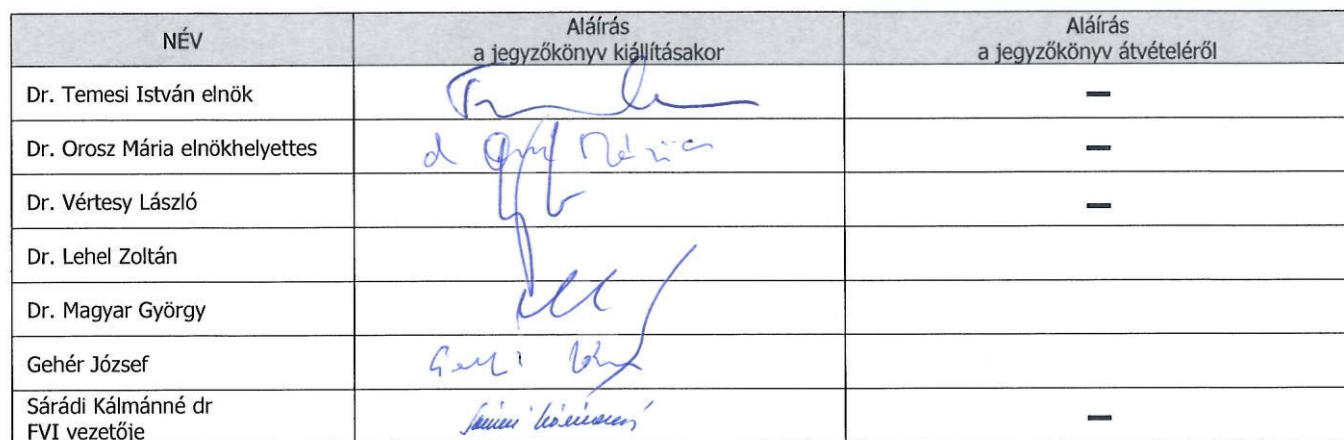 NÉV
Aláírás
a jegyzőkönyv kiállításakor
Aláírás
a jegyzőkönyv átvételéről
Dr. Temesi István elnök
—
Dr. Orosz Mária elnökhelyettes
d Mária
—
Dr. Vértesy László
—
Dr. Lehel Zoltán
Dr. Magyar György
Gehér József
Sárádi Kálmánné dr
FVI vezetője
—